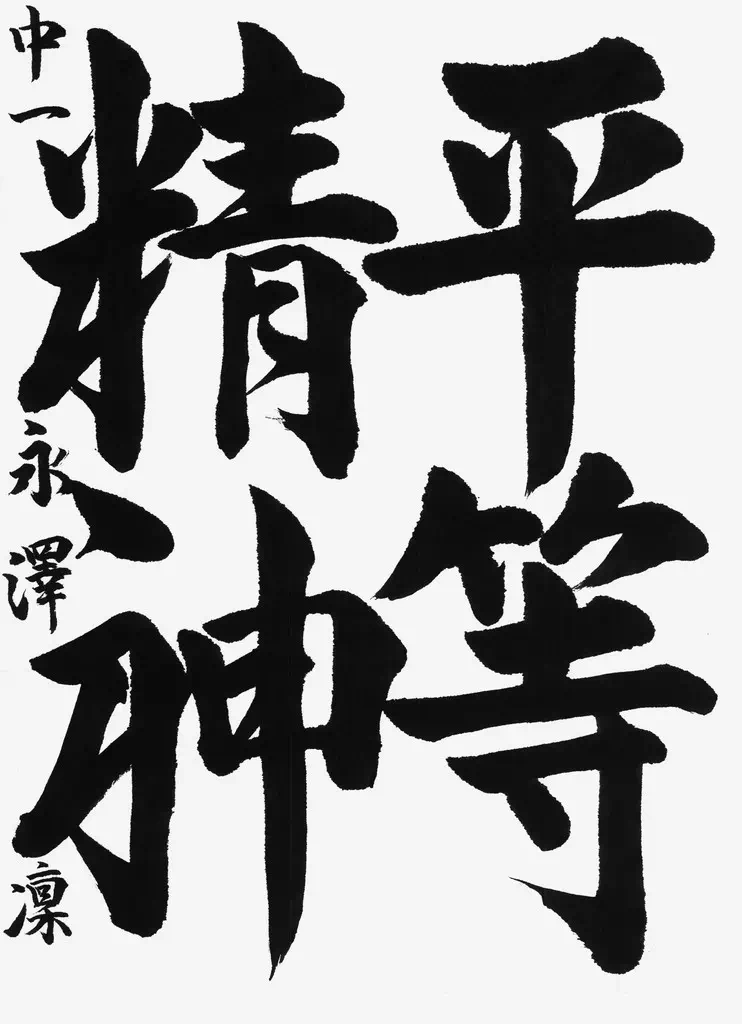 平等
精神
中一 永澤 凛